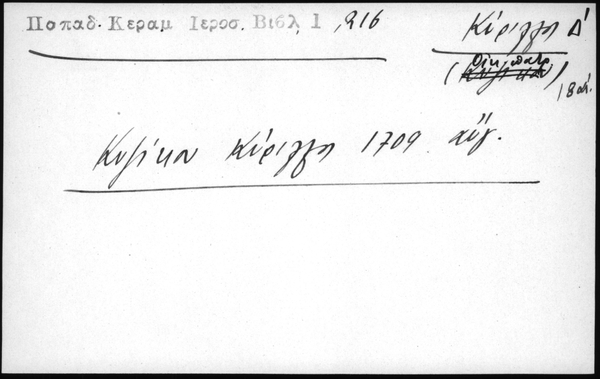 Παπαδ. Κεραμ Ιεροσ. Βιβλ 1 ,216
Κύριλλος Δ'
(Οἰκ. πατρ)
18 αἰ.
Κυζίκου Κύριλλος 1709 αὔγ.